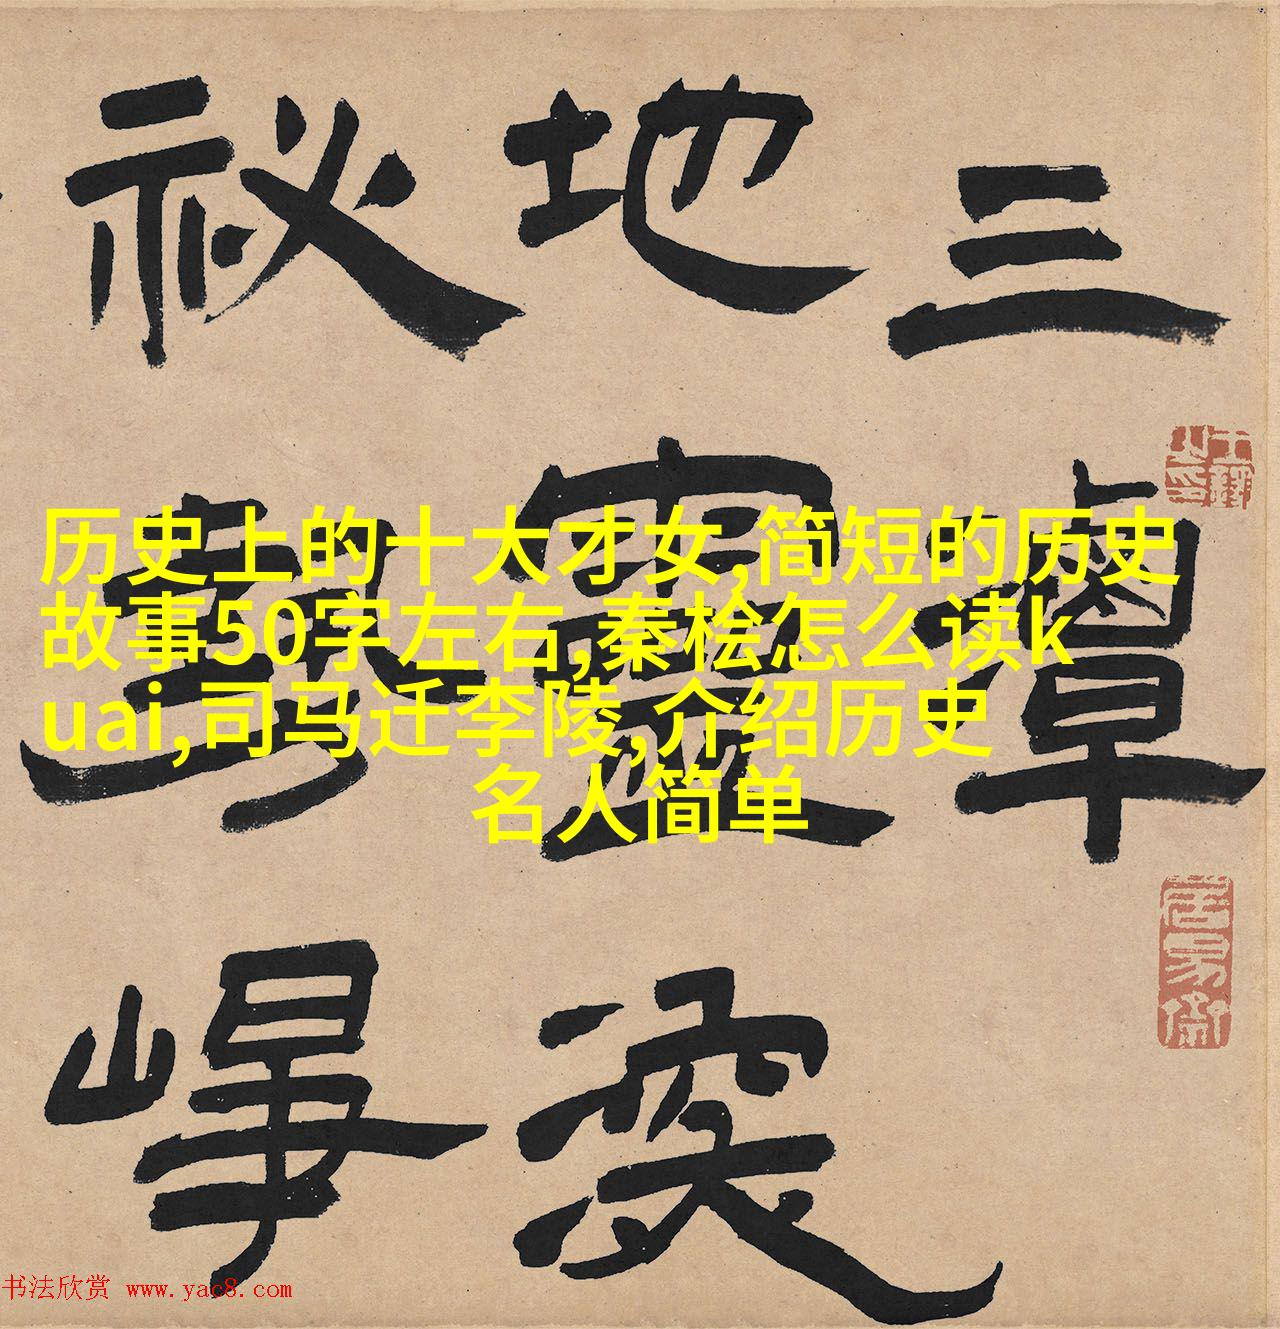 三
地靈
祕
历史上的十大才女,简短的历史
故事50字左右,秦桧怎么读k
uai,司马迁李陵,介绍历史
名人简单
书法欣赏 www.yac8.com